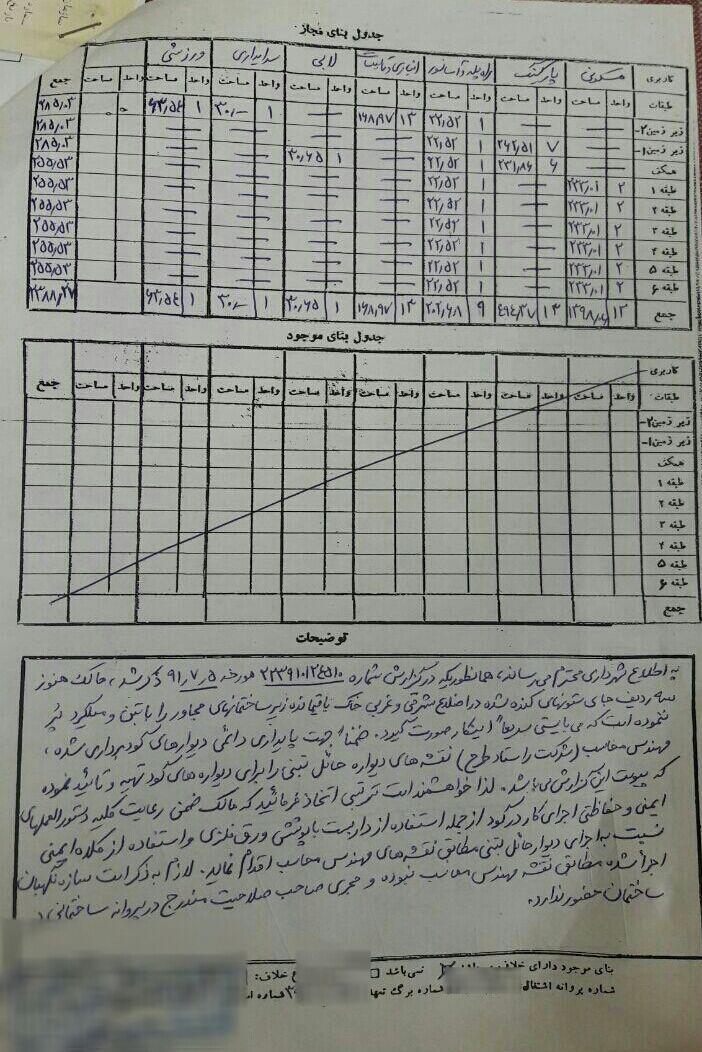 جدول بنای مجاز
کاربری مسکونی پارکینگ راه پله و آسانسور انباری و تاسیسات لابی سرایداری ورزشی جمع
طبقات واحد مساحت واحد مساحت واحد مساحت واحد مساحت واحد مساحت واحد مساحت واحد مساحت واحد مساحت
زیر زمین ۲- — — ۱ ۲۲,۵۲ ۱۳ ۱۶۸,۹۷ — ۱ ۳۰,— ۱ ۶۳,۵۴ ۲۸۵,۰۳
زیر زمین ۱- — ۷ ۲۶۲,۵۱ ۱ ۲۲,۵۲ — — — — ۲۸۵,۰۳
همکف — ۶ ۲۳۱,۸۶ ۱ ۲۲,۵۲ — ۱ ۳۰,۶۵ — — ۲۸۵,۰۳
طبقه ۱ ۲ ۲۳۳,۰۱ — ۱ ۲۲,۵۲ — — — — ۲۵۵,۵۳
طبقه ۲ ۲ ۲۳۳,۰۱ — ۱ ۲۲,۵۲ — — — — ۲۵۵,۵۳
طبقه ۳ ۲ ۲۳۳,۰۱ — ۱ ۲۲,۵۲ — — — — ۲۵۵,۵۳
طبقه ۴ ۲ ۲۳۳,۰۱ — ۱ ۲۲,۵۲ — — — — ۲۵۵,۵۳
طبقه ۵ ۲ ۲۳۳,۰۱ — ۱ ۲۲,۵۲ — — — — ۲۵۵,۵۳
طبقه ۶ ۲ ۲۳۳,۰۱ — ۱ ۲۲,۵۲ — — — — ۲۵۵,۵۳
جمع ۱۲ ۱۳۹۸,۰۶ ۱۳ ۴۹۴,۳۷ ۹ ۲۰۲,۶۸ ۱۳ ۱۶۸,۹۷ ۱ ۳۰,۶۵ ۱ ۳۰,— ۱ ۶۳,۵۴ ۲۳۸۸,۲۷
جدول بنای موجود
کاربری جمع
طبقات واحد مساحت واحد مساحت واحد مساحت واحد مساحت واحد مساحت واحد مساحت واحد مساحت واحد مساحت
زیر زمین ۲-
زیر زمین ۱-
همکف
طبقه ۱
طبقه ۲
طبقه ۳
طبقه ۴
طبقه ۵
طبقه ۶
جمع
توضیحات
به اطلاع شهرداری محترم می رساند، همانطوریکه در گزارش شماره مورخه ۹۱,۷,۵ ذکر شد، مالک هنوز
سه ردیف جای شمعهای کنده شده در اضلاع شرقی و غربی خاک باقیمانده زیر ساختمانهای مجاور را با بتن و میلگرد پر
ننموده است که می بایستی سریعاً اینکار صورت گیرد. ضمناً جهت پایداری دائمی دیوارهای گودبرداری شده،
مهندس محاسب (شرکت راستاد طرح) نقشه های دیواره حائل بتنی را برای دیواره های گود تهیه و تائید نموده
که پیوست این گزارش می باشد. لذا خواهشمند است ترتیبی اتخاذ فرمائید که مالک ضمن رعایت کلیه دستورالعملهای
ایمنی و حفاظتی اجرای کار در گود از جمله استفاده از داربست با پوشش ورق فلزی و استفاده از کلاه ایمنی
نسبت به اجرای دیوار حائل بتنی مطابق نقشه های مهندس محاسب اقدام نماید. لازم به ذکر است سازه نگهبان
اجرا شده مطابق نقشه مهندس محاسب نبوده و مجری صاحب صلاحیت مندرج در پروانه ساختمانی در
ساختمان حضور ندارد.
بنای موجود دارای خلاف نمی باشد خلاف:
شماره پروانه اشتغال شماره برگ تعهد شماره